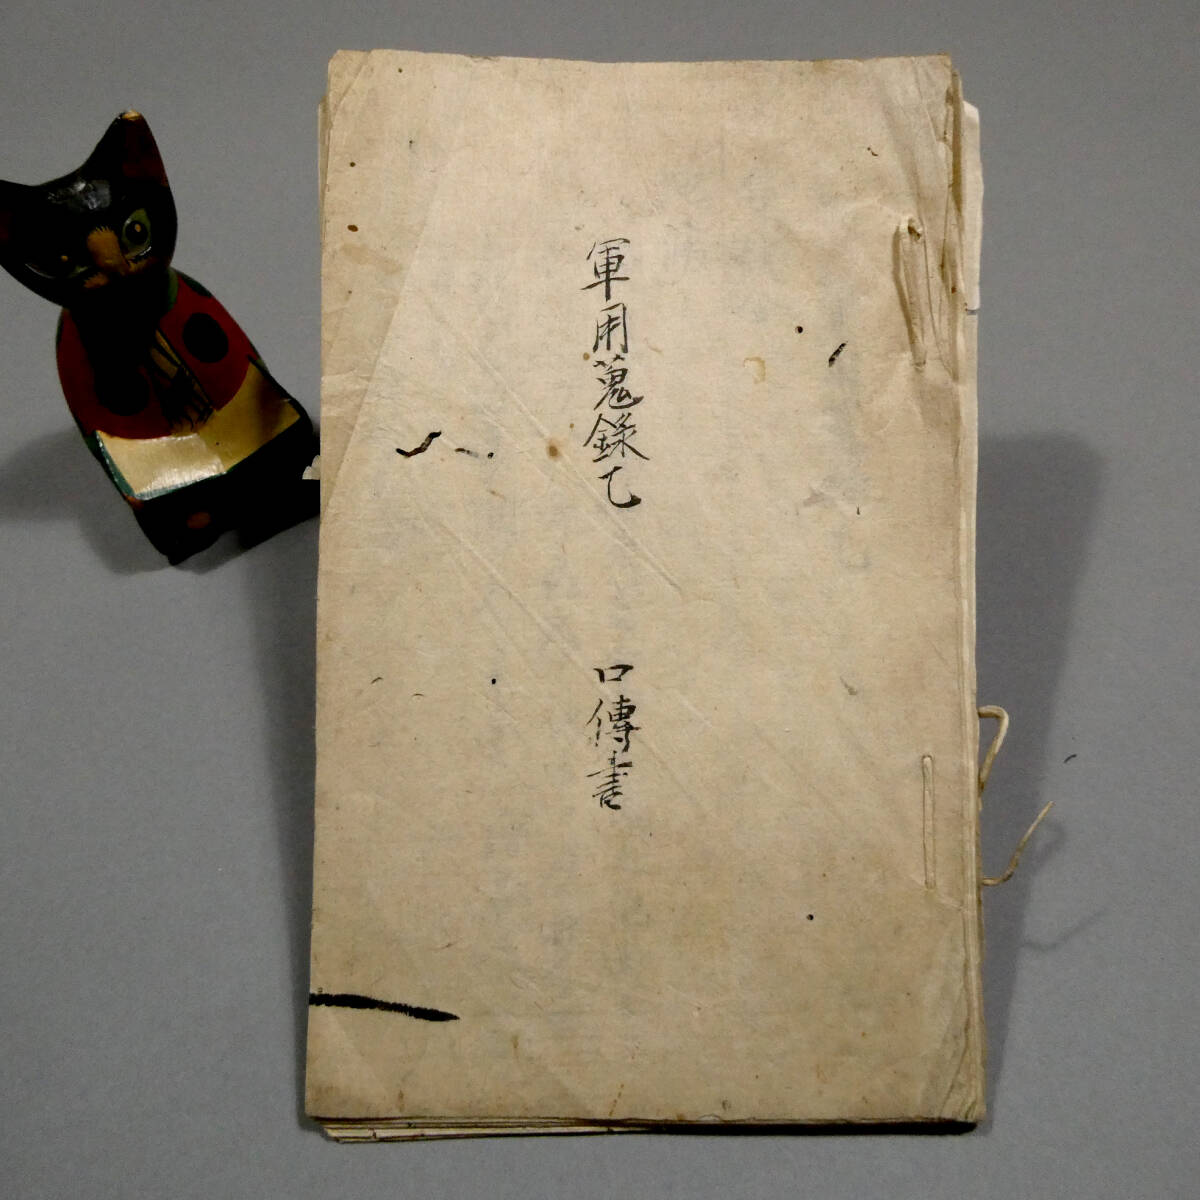 軍用蒐錄乙
口傳書